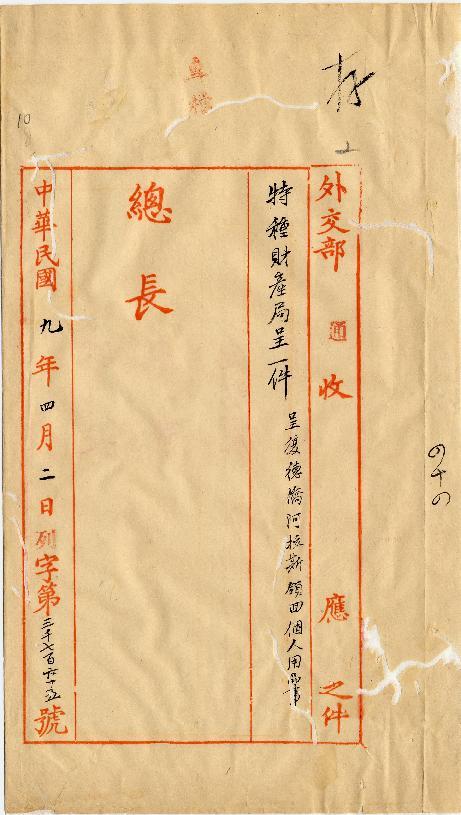 存
10
外交部 通 收 應 之件
特種財產局呈一件 呈復德僑阿拔斯領回個人用品事
總長
中華民國九年四月二日列字第三千七百六十五號
四十四